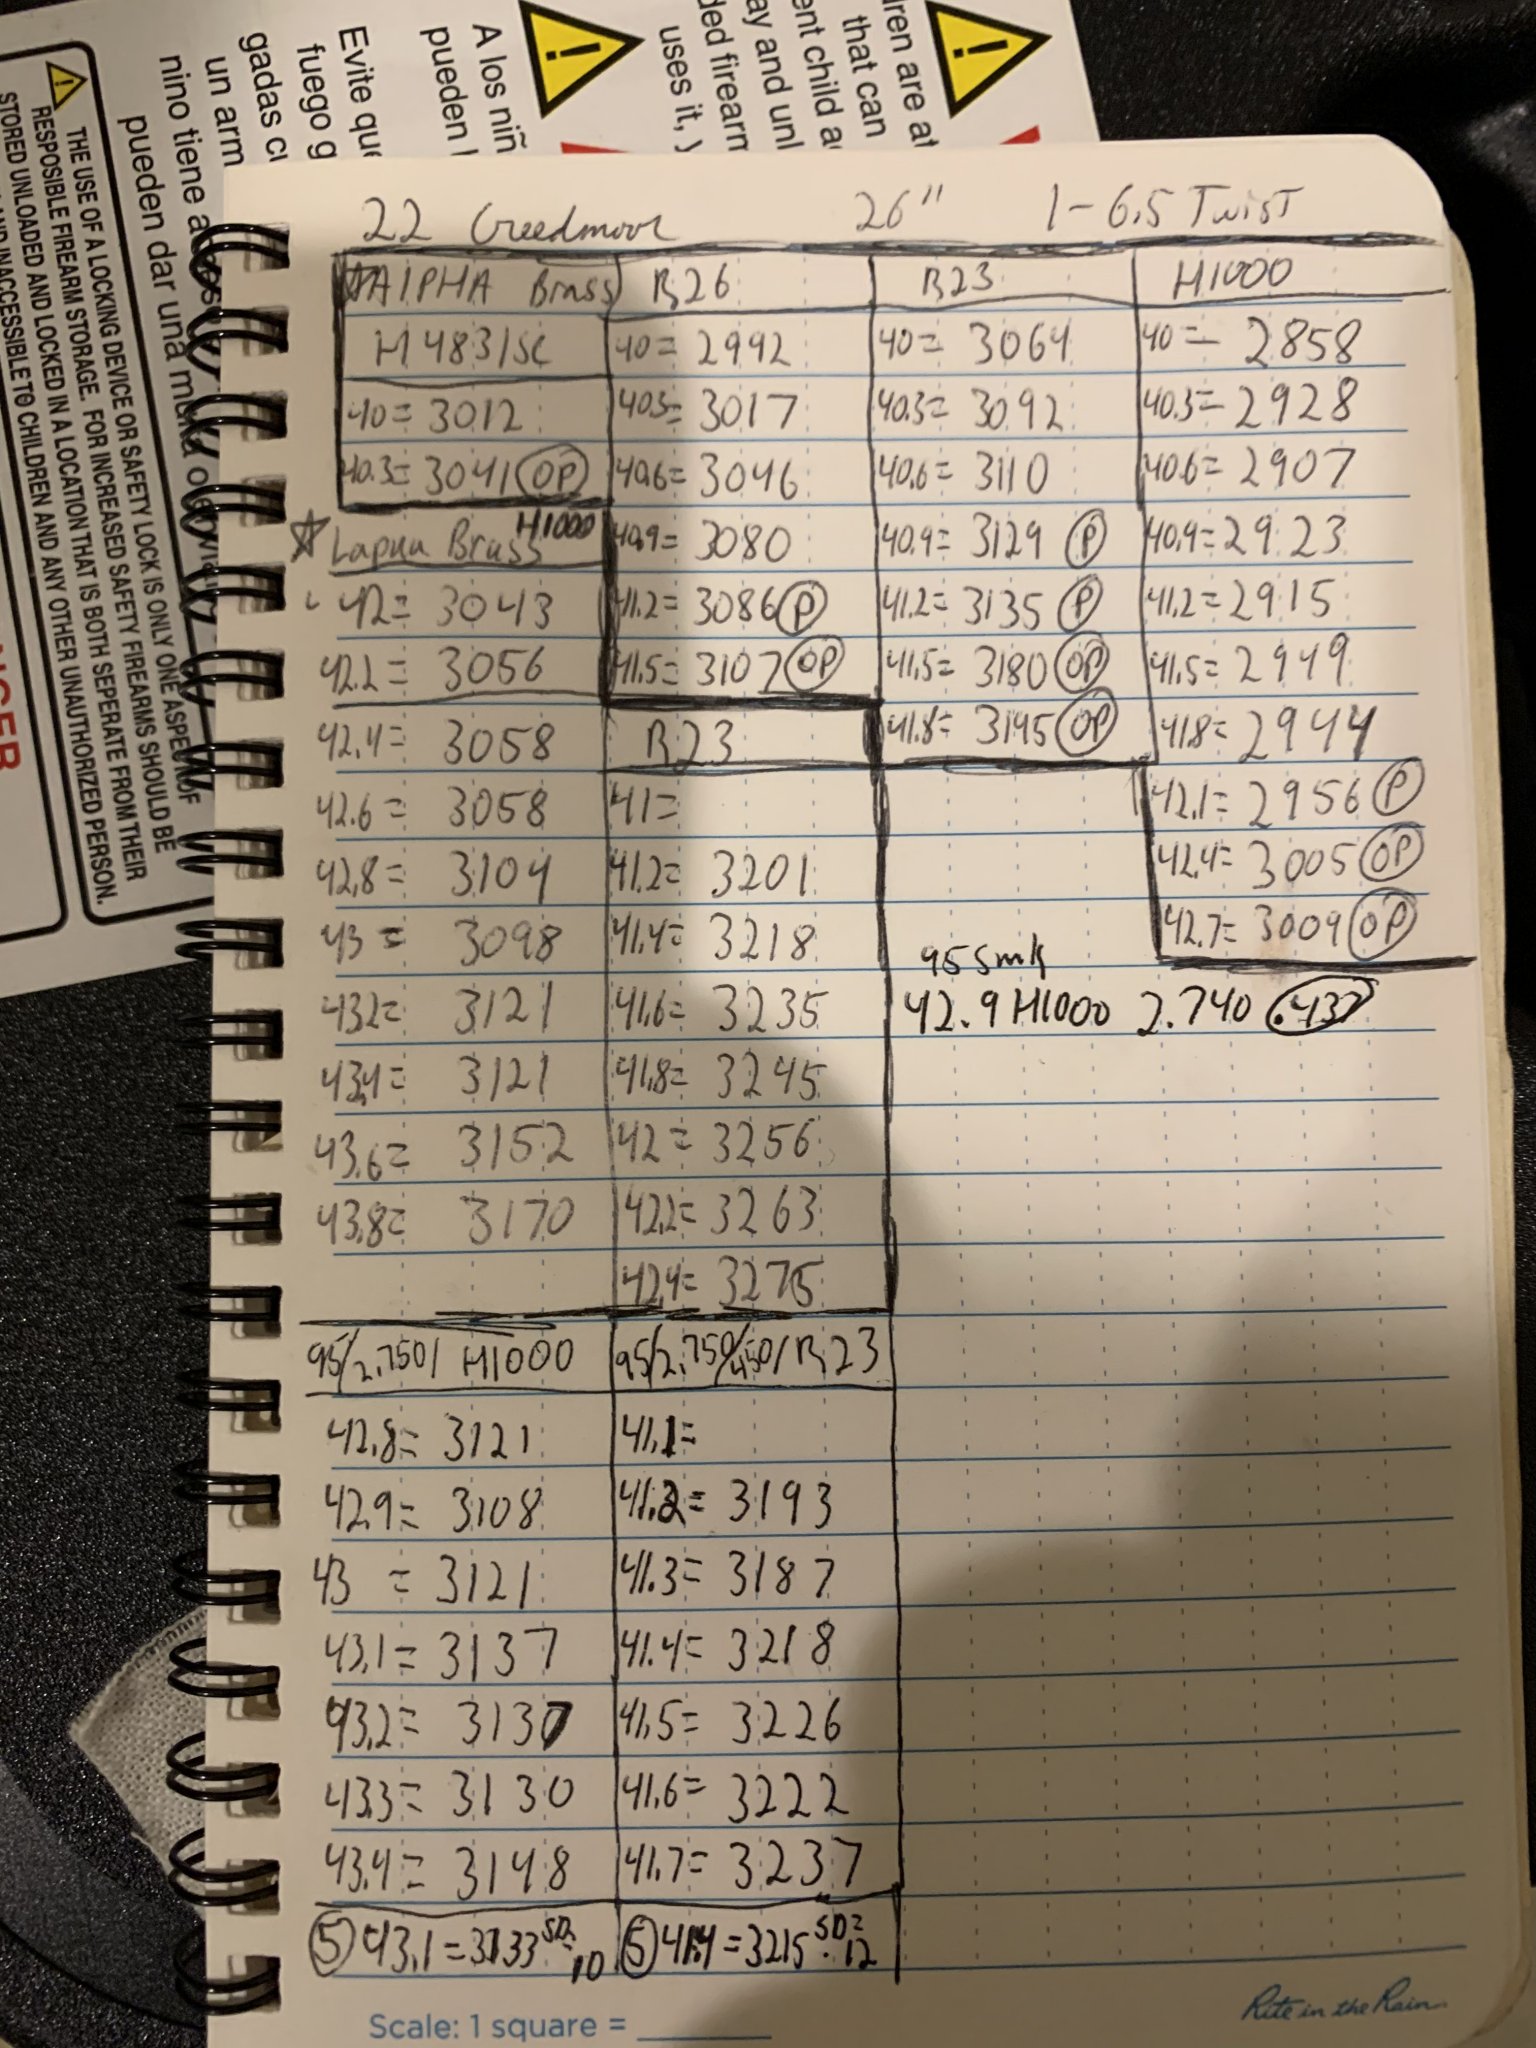 22 Creedmoor 26" 1-6.5 Twist
ALPHA Brass
H4831SC
40= 3012
40.3= 3041 OP
Lapua Brass H1000
42= 3043
42.2= 3056
42.4= 3058
42.6= 3058
42.8= 3104
43 = 3098
43.2= 3121
43.4= 3121
43.6= 3152
43.8= 3170
R26
40= 2992
40.3= 3017
40.6= 3046
40.9= 3080
41.2= 3086 P
41.5= 3107 OP
R23
41=
41.2= 3201
41.4= 3218
41.6= 3235
41.8= 3245
42 = 3256
42.2= 3263
42.4= 3275
R23
40= 3064
40.3= 3092
40.6= 3110
40.9= 3129 P
41.2= 3135 P
41.5= 3180 OP
41.8= 3195 OP
H1000
40 = 2858
40.3= 2928
40.6= 2907
40.9= 2923
41.2= 2915
41.5= 2949
41.8= 2944
42.1= 2956 P
42.4= 3005 OP
42.7= 3009 OP
95 Smk
42.9 H1000 2.740 .437
95/2.750/ H1000
42.8= 3121
42.9= 3108
43 = 3121
43.1= 3137
43.2= 3130
43.3= 3130
43.4= 3148
5 43.1 = 3133 SD= 10
95/2.750/.450/R23
41.1=
41.2= 3193
41.3= 3187
41.4= 3218
41.5= 3226
41.6= 3222
41.7= 3237
5 41.4 = 3215 SD= 12
Scale: 1 square =
Rite in the Rain
A los niñ
pueden
Evite que
fuego g
gadas cu
un arm
nino tiene
pueden dar una
dren are at
that can
ent child
ay and unl
ded firearm
uses it,
THE USE OF A LOCKING DEVICE OR SAFETY LOCK IS ONLY ONE ASPECT OF
RESPONSIBLE FIREARM STORAGE. FOR INCREASED SAFETY FIREARMS SHOULD BE
STORED UNLOADED AND LOCKED IN A LOCATION THAT IS BOTH SEPERATE FROM THEIR
AND INACCESSIBLE TO CHILDREN AND ANY OTHER UNAUTHORIZED PERSON.